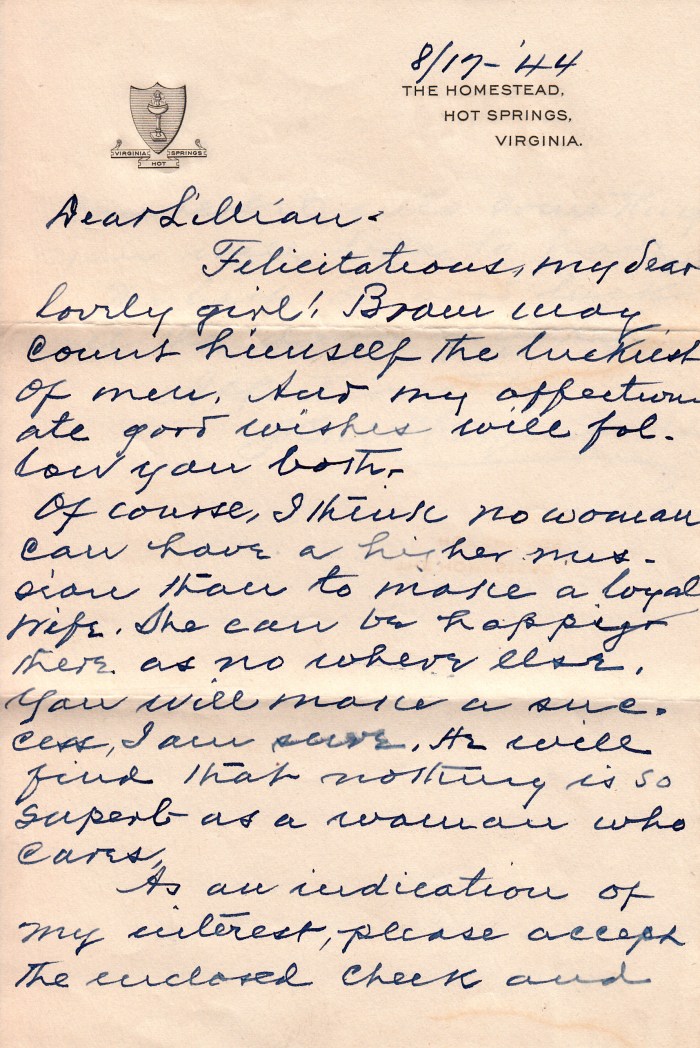 8/17-'44
THE HOMESTEAD,
HOT SPRINGS,
VIRGINIA.
VIRGINIA SPRINGS
HOT
Dear Lillian-
Felicitations, my dear
lovely girl! Bram may
count himself the luckiest
of men. And my affection
ate good wishes will fol-
low you both.
Of course, I think no woman
can have a higher mis-
sion than to make a loyal
wife. She can be happier
there as no where else.
You will make a suc-
cess, I am sure. He will
find that nothing is so
superb as a woman who
cares.
As an indication of
my interest, please accept
the enclosed check and